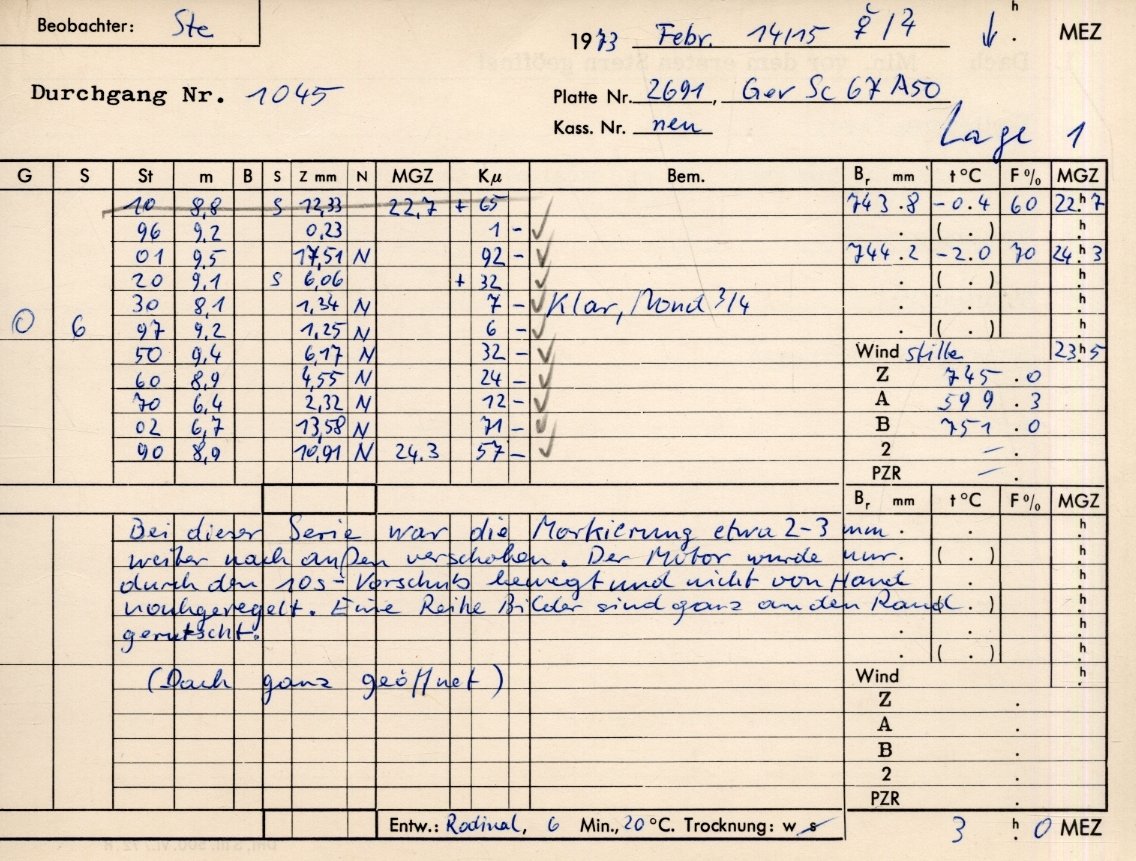 Beobachter: Ste
1973 Febr. 14/15 ☿/♃ h . MEZ
Durchgang Nr. 1045
Platte Nr. 2691, Gev Sc 67 A50
Kass. Nr. neu
Lage 1
G S St m B S Z mm N MGZ Kμ Bem. Br mm t °C F % MGZ
10 8,8 S 12,33 22,7 + 65 743.8 -0.4 60 22h7
96 9,2 0,23 1 - ✓ . ( . ) h.
01 9,5 17,51 N 92 - ✓ 744.2 -2.0 70 24h3
20 9,1 S 6,06 + 32 ✓ . ( . ) h.
30 8,1 1,34 N 7 - ✓ Klar, Mond 3/4 . . h.
0 6 97 9,2 1,25 N 6 - ✓ . ( . ) h.
50 9,4 6,17 N 32 - ✓ Wind stille 23h5
60 8,9 4,55 N 24 - ✓ Z 745.0
70 6,4 2,32 N 12 - ✓ A 599.3
02 6,7 13,58 N 71 - ✓ B 751.0
90 8,9 10,91 N 24.3 57 - ✓ 2 - .
PZR - .
Br mm t °C F % MGZ
Bei dieser Serie war die Markierung etwa 2-3 mm . . h.
weiter nach außen verschoben. Der Motor wurde nur . ( . ) h.
durch den 10s-Vorschub bewegt und nicht von Hand . h.
nachgeregelt. Eine Reihe Bilder sind ganz an den Rand . ( . ) h.
gerutscht. . . h.
. ( . ) h.
(Dach ganz geöffnet) Wind h.
Z .
A .
B .
2 .
PZR .
Entw.: Rodinal, 6 Min., 20 °C. Trocknung: w s 3 h. 0 MEZ